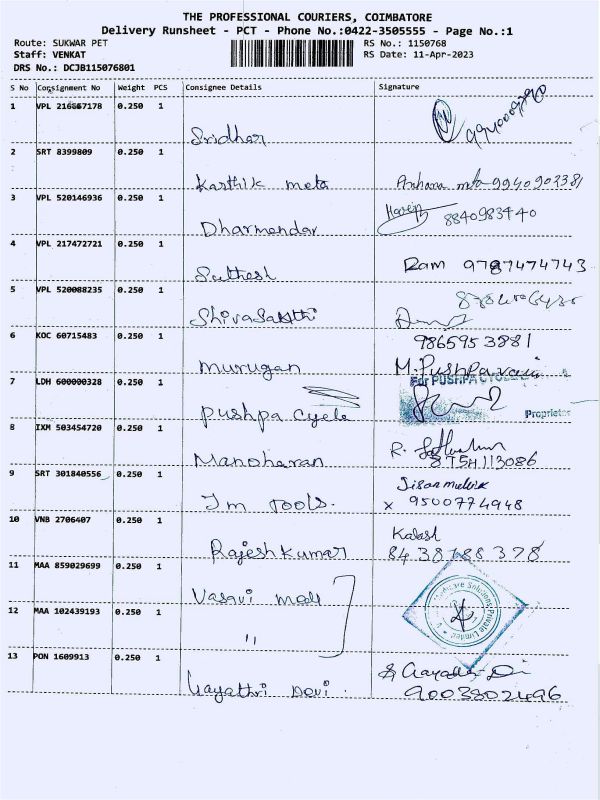 THE PROFESSIONAL COURIERS, COIMBATORE
Delivery Runsheet - PCT - Phone No.:0422-3505555 - Page No.:1
Route: SUKWAR PET RS No.: 1150768
Staff: VENKAT RS Date: 11-Apr-2023
DRS No.: DCJB115076801
S No Consignment No Weight PCS Consignee Details Signature
1 VPL 216567178 0.250 1
Sridhar
2 SRT 8399809 0.250 1
Karthik meta Archana meta 9940902381
3 VPL 520146936 0.250 1
Dharmendar 8840983440
4 VPL 217472721 0.250 1
Sathesh Ram 9787474743
5 VPL 520088235 0.250 1
ShivaSakthi
6 KOC 60715483 0.250 1 9865953881
murugan M. Pushpavani
7 LDH 600000328 0.250 1 For PUSHPA CYCLE
Pushpa Cycle Proprietor
8 IXM 503454720 0.250 1
Manoharan R. 8754113086
9 SRT 301840556 0.250 1
Jm Tools. x 9500774948
10 VNB 2706407 0.250 1 Kalash
Rajesh kumar 8438188378
11 MAA 859029699 0.250 1
Vasavi medi
12 MAA 102439193 0.250 1
"
Healthcare Solutions Private Limited
13 PON 1609913 0.250 1
Gayathri Devi. 9003802496